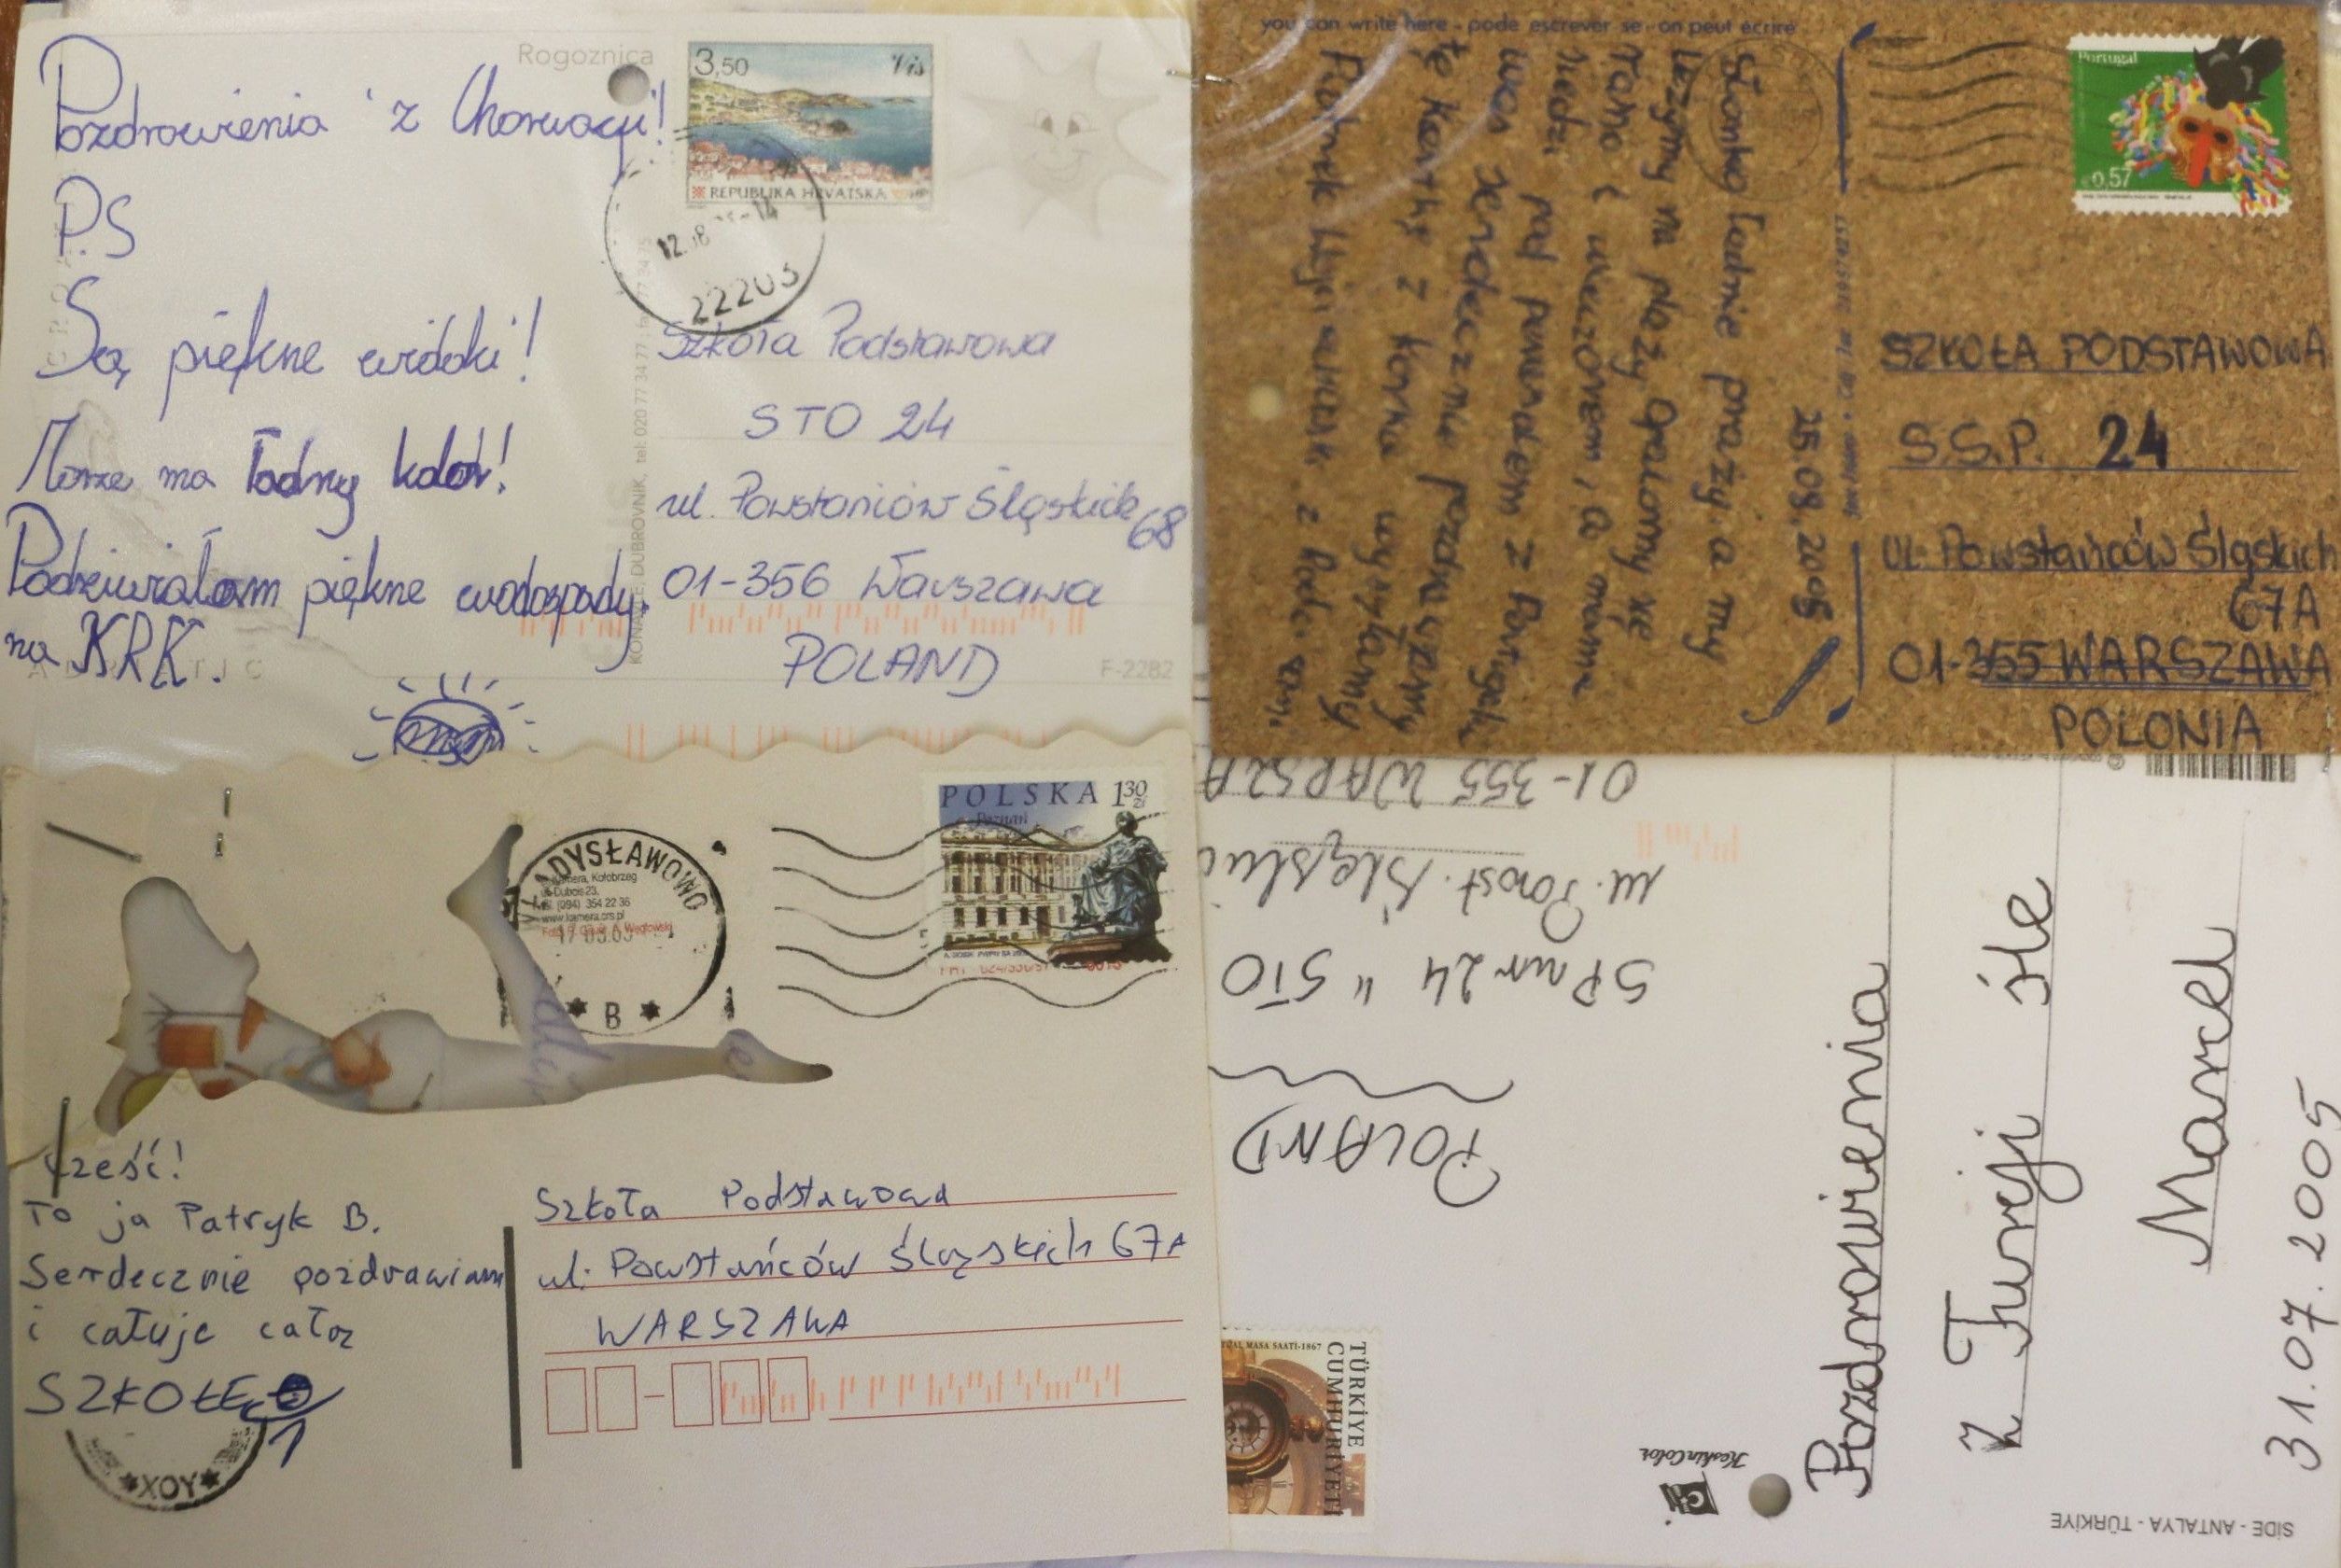 Rogoznica
Pozdrowienia z Chorwacji!
P.S
Są piękne widoki!
Morze ma ładny kolor!
Podziwiałam piękne wodospady
na KRK.
3,50 Vis
REPUBLIKA HRVATSKA
22203
Szkoła Podstawowa
STO 24
ul. Powstańców Śląskich 68
01-356 Warszawa
POLAND
F-2282
you can write here - pode escrever se - on peut écrire
25.08.2005
Słonko ładnie praży, a my
leżymy na plaży. Opalamy się
rano i wieczorem, a mama
siedzi pod parasolem z Portugalii
was serdecznie pozdrawiamy
tę kartkę z korka wysyłamy
Portugal
€0,57
SZKOŁA PODSTAWOWA
S.S.P. 24
ul. Powstańców Śląskich
67A
01-355 WARSZAWA
POLONIA
WŁADYSŁAWOWO
B
POLSKA 1 30 zł
Poznań
Cześć!
To ja Patryk B.
Serdecznie pozdrawiam
i całuje całą
SZKOŁĘ
1
*XOY*
Szkoła Podstawowa
ul. Powstańców Śląskich 67A
WARSZAWA
01-355 WARSZA
ul. Powst. Śląskic
SP nr 24 " STO
POLAND
TÜRKİYE
CUMHURİYETİ
MASA SAATİ-1867
KeskinColor
Pozdrowienia
z Turcji śle
Marcel
31.07.2005
SİDE - ANTALYA - TÜRKİYE